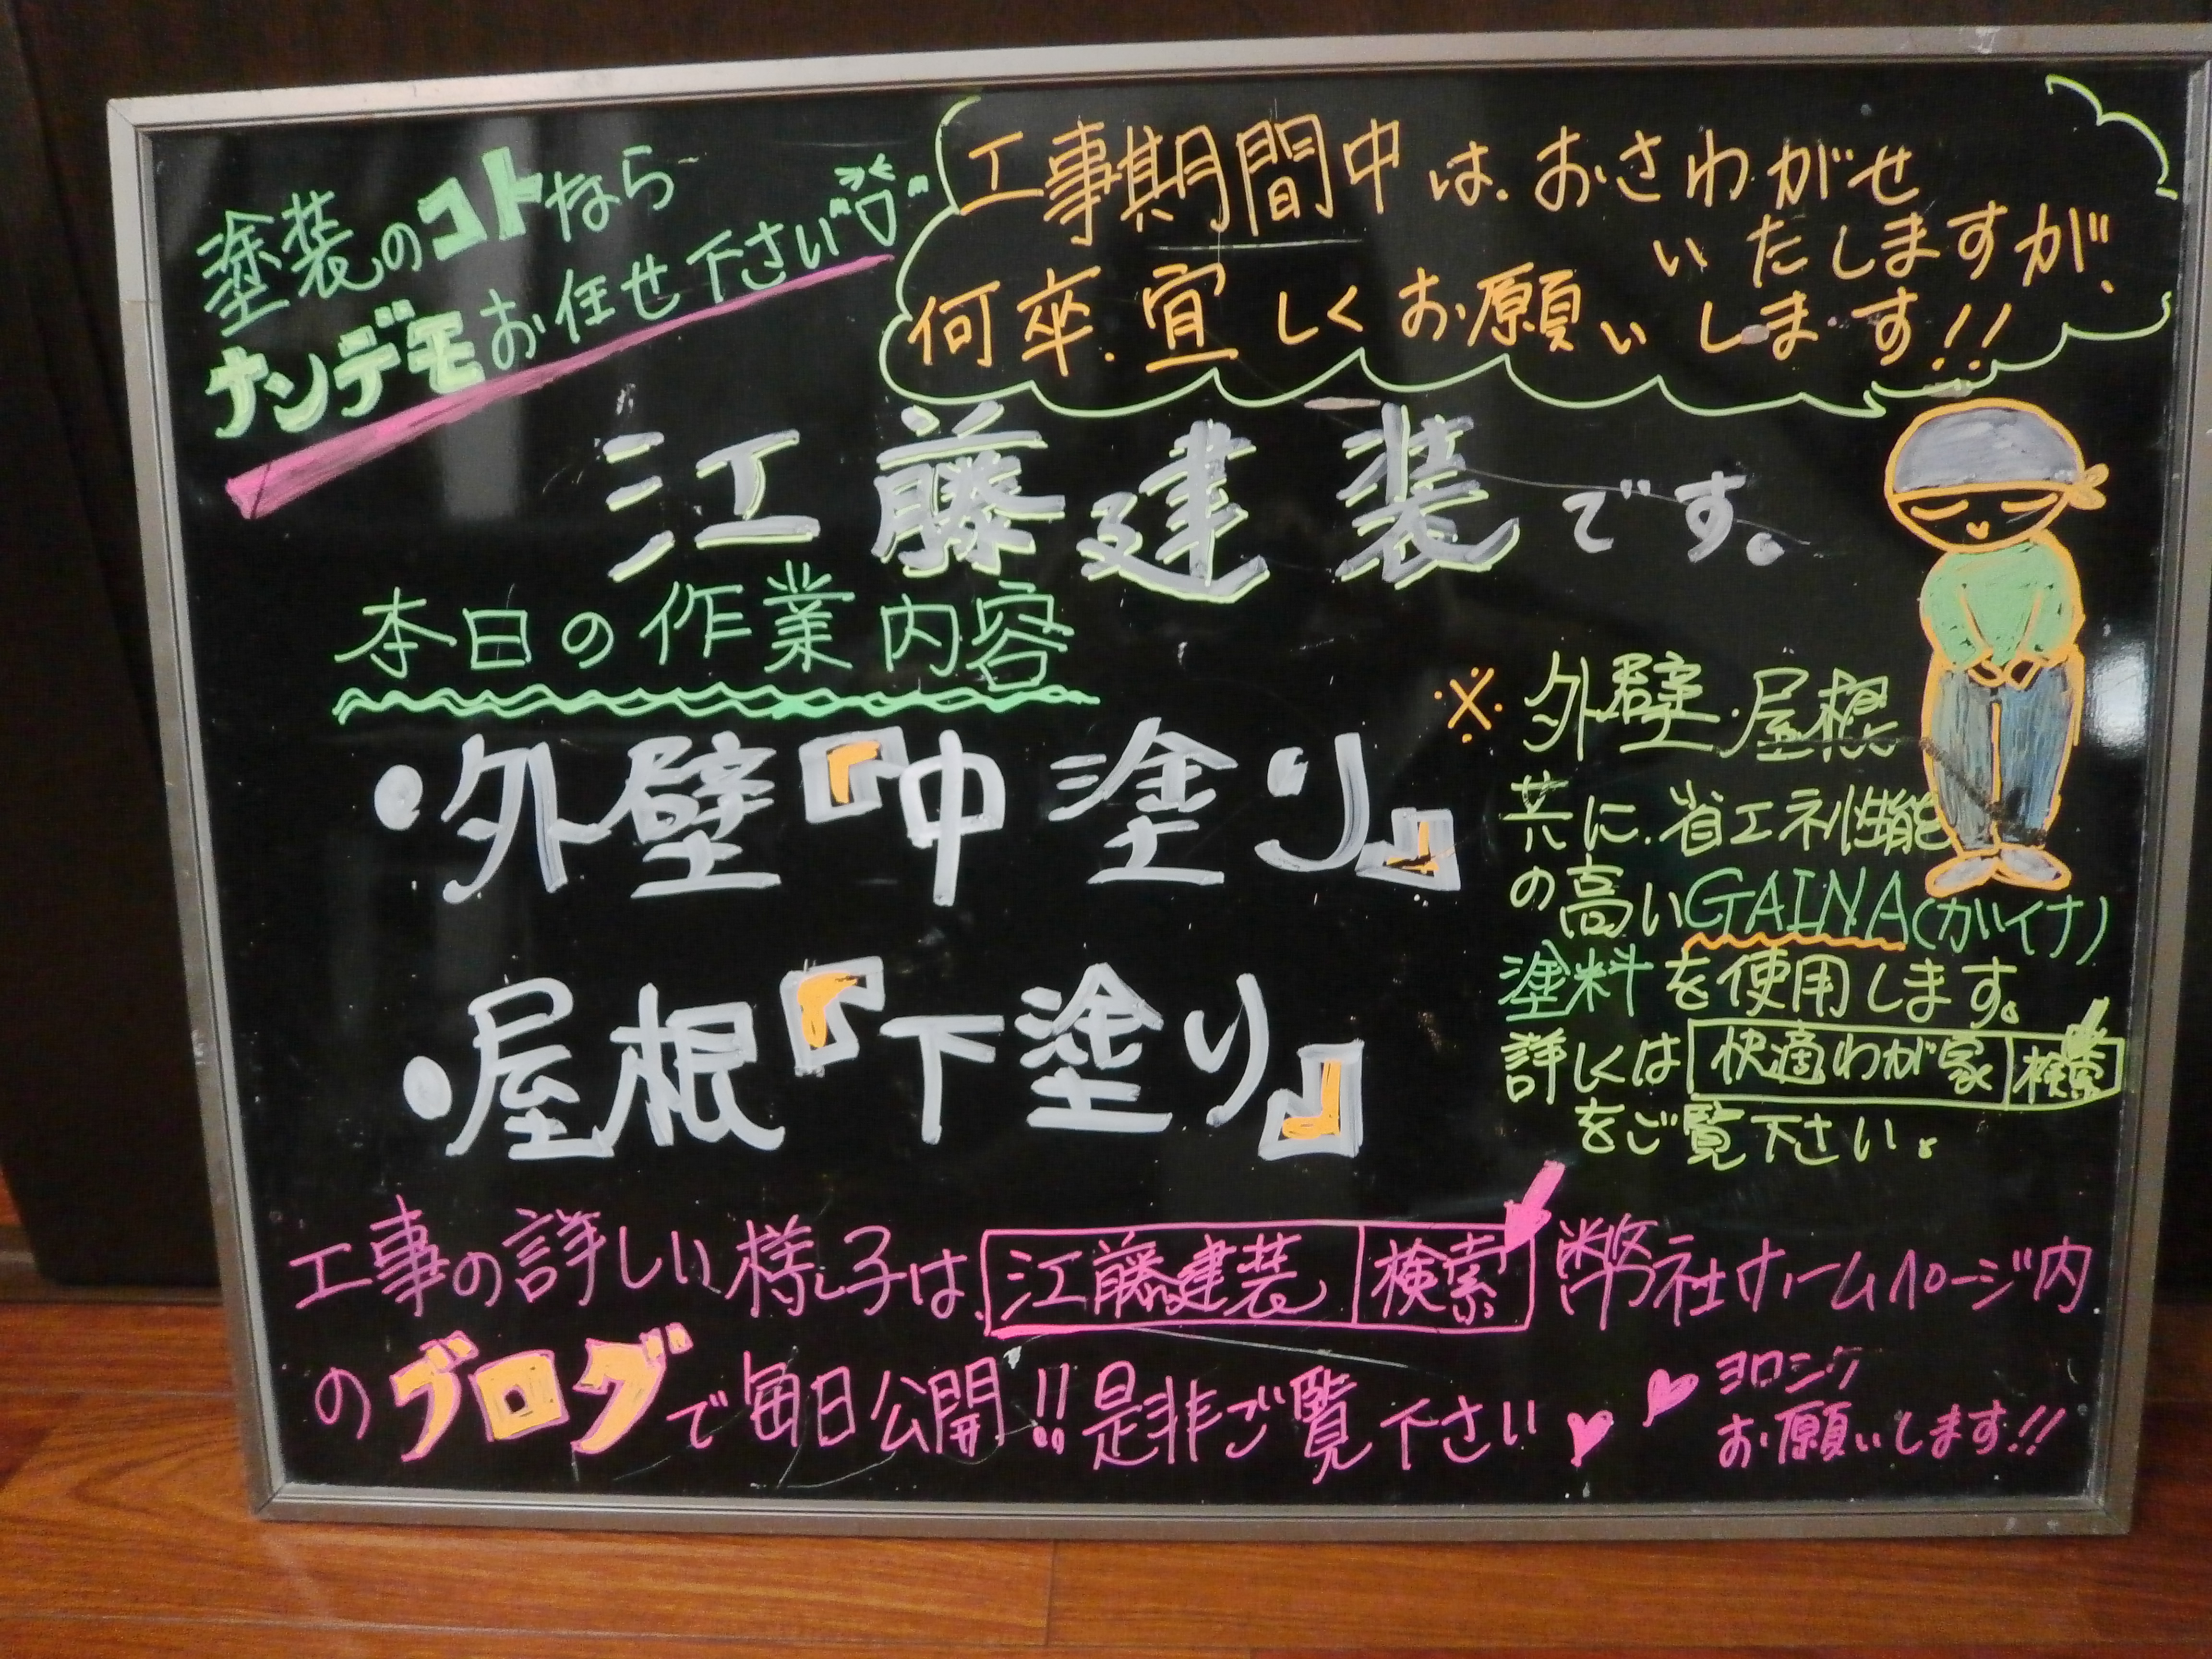 塗装のコトなら
ナンデモお任せ下さい
工事期間中は、おさわがせ
いたしますが、
何卒、宜しくお願いします!!
江藤建装です。
本日の作業内容
・外壁『中塗り』
・屋根『下塗り』
※外壁・屋根
共に、省エネ性能
の高いGAINA(ガイナ)
塗料を使用します。
詳しくは 快適わが家 検索
をご覧下さい。
工事の詳しい様子は、江藤建装 検索 弊社ホームページ内
のブログで毎日公開!!是非ご覧下さい
ヨロシク
お願いします!!